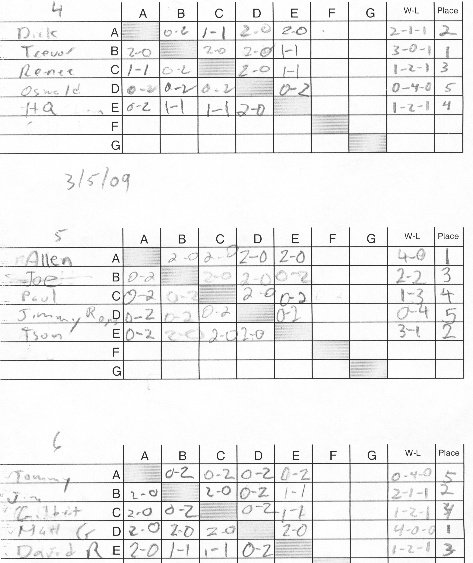 4
A B C D E F G W-L Place
Dick A 0-2 1-1 2-0 2-0 2-1-1 2
Trevor B 2-0 2-0 2-0 1-1 3-0-1 1
Renee C 1-1 0-2 2-0 1-1 1-2-1 3
Oswald D 0-2 0-2 0-2 0-2 0-4-0 5
HQ E 0-2 1-1 1-1 2-0 1-2-1 4
F
G
3/5/09
5
A B C D E F G W-L Place
Allen A 2-0 2-0 2-0 2-0 4-0 1
Joe B 0-2 2-0 2-0 0-2 2-2 3
Paul C 0-2 0-2 2-0 0-2 1-3 4
Jimmy D 0-2 0-2 0-2 0-2 0-4 5
Tson E 0-2 2-0 2-0 2-0 3-1 2
F
G
6
A B C D E F G W-L Place
Tommy A 0-2 0-2 0-2 0-2 0-4-0 5
Jim B 2-0 2-0 0-2 1-1 2-1-1 2
Gilbert C 2-0 0-2 0-2 1-1 1-2-1
Matt G D 2-0 2-0 2-0 2-0 4-0-0 1
David R E 2-0 1-1 1-1 0-2 1-2-1 3